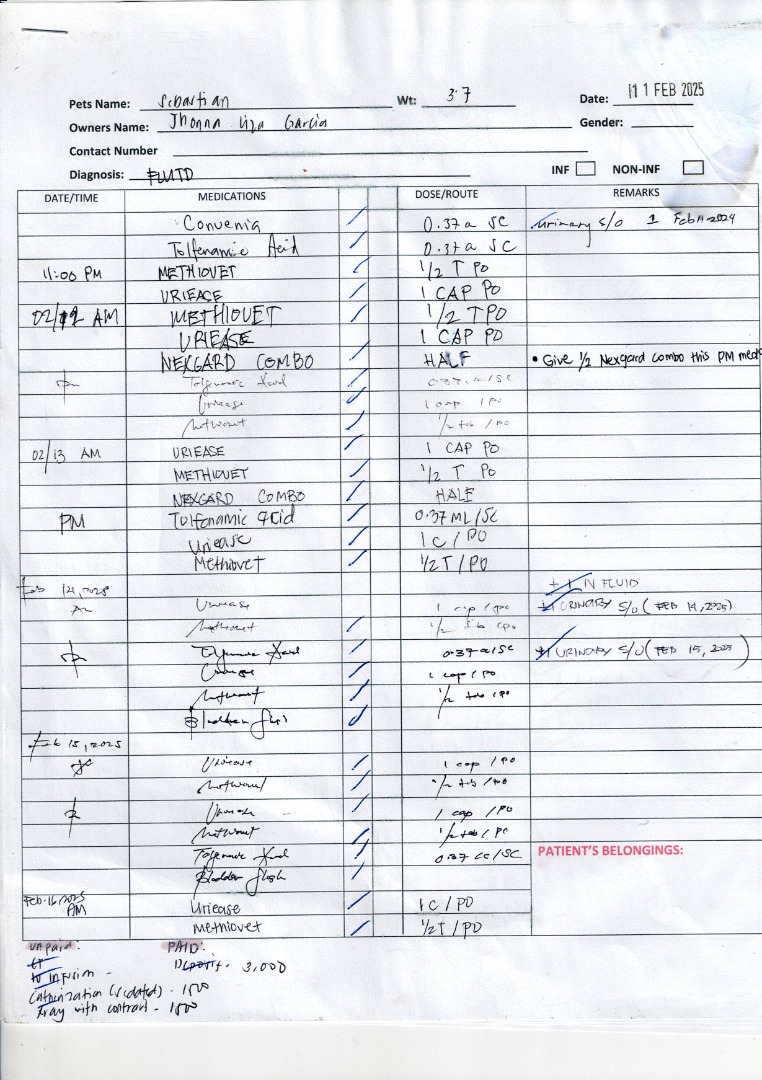 Pets Name: Sebastian Wt: 3.7 Date: 11 FEB 2025
Owners Name: Jhonna Liza Garcia Gender:
Contact Number
Diagnosis: FLUTD INF NON-INF
DATE/TIME MEDICATIONS DOSE/ROUTE REMARKS
Convenia 0.37 SC urinary s/o 1 Feb 11 2024
Tolfenamic Acid 0.37 SC
11:00 PM METHIOVET 1/2 T PO
URIEASE 1 CAP PO
02/12 AM METHIOVET 1/2 T PO
URIEASE 1 CAP PO
NEXGARD COMBO HALF • Give 1/2 Nexgard combo this PM meds
Tolfenamic Acid 0.37 /SC
Uriease 1 cap / PO
Methiovet 1/2 tab / PO
02/13 AM URIEASE 1 CAP PO
METHIOVET 1/2 T PO
NEXGARD COMBO HALF
PM Tolfenamic acid 0.37 ML/SC
Uriease 1 C / PO
Methiovet 1/2 T / PO
Feb 14, 2025 IN FLUID
Uriease 1 cap / po URINARY S/O (FEB 14, 2025)
Methiovet 1/2
Tolfenamic Acid 0.37 /SC URINARY S/O (FEB 15, 2025)
Uriease 1 cap / PO
Methiovet 1/2 tab / PO
Bladder flush
Feb 15, 2025
Uriease 1 cap / PO
Methiovet 1/2 tab / PO
Uriease 1 cap / PO
Methiovet 1/2 tab / PO
Tolfenamic Acid 0.37 CC/SC PATIENT'S BELONGINGS:
Bladder flush
Feb. 16, 2025
PM Uriease 1 C / PO
Methiovet 1/2 T / PO
unpaid: PAID:
Deposit - 3,000
IV infusion -
(sedated) - 1500
Xray with contrast - 1500